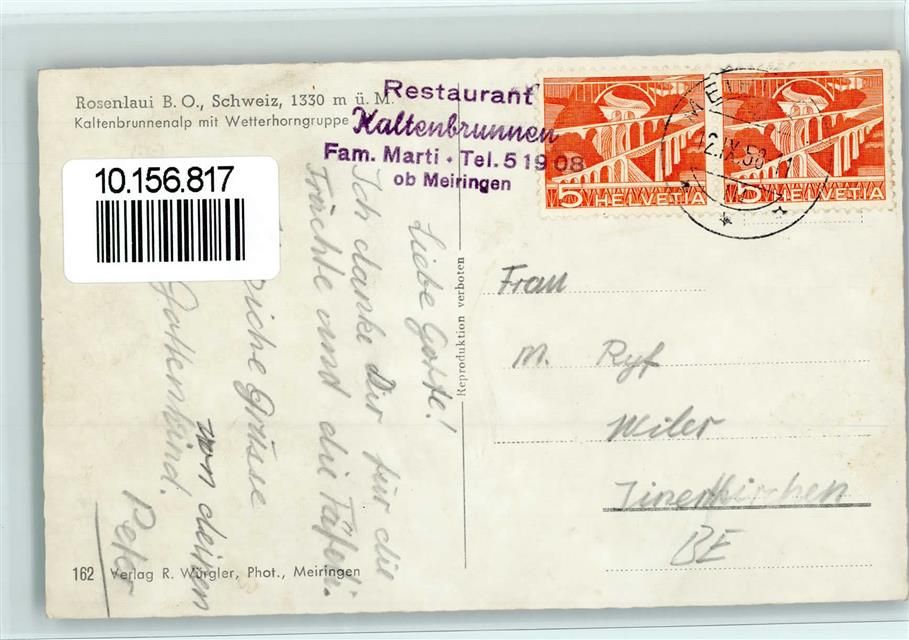 Rosenlaui B. O., Schweiz, 1330 m ü. M.
Kaltenbrunnenalp mit Wetterhorngruppe
Restaurant
Kaltenbrunnen
Fam. Marti • Tel. 5 19 08
ob Meiringen
10.156.817
5 HELVETIA
5 HELVETIA
12.IX.50
Liebe Gotte!
Ich danke Dir für die
Früchte und die Täfeli.
Grüsse
von deinem
Gottenkind.
Peter
Reproduktion verboten
Frau
M. Ryf
Weiler
Innertkirchen
BE
162 Verlag R. Würgler, Phot., Meiringen